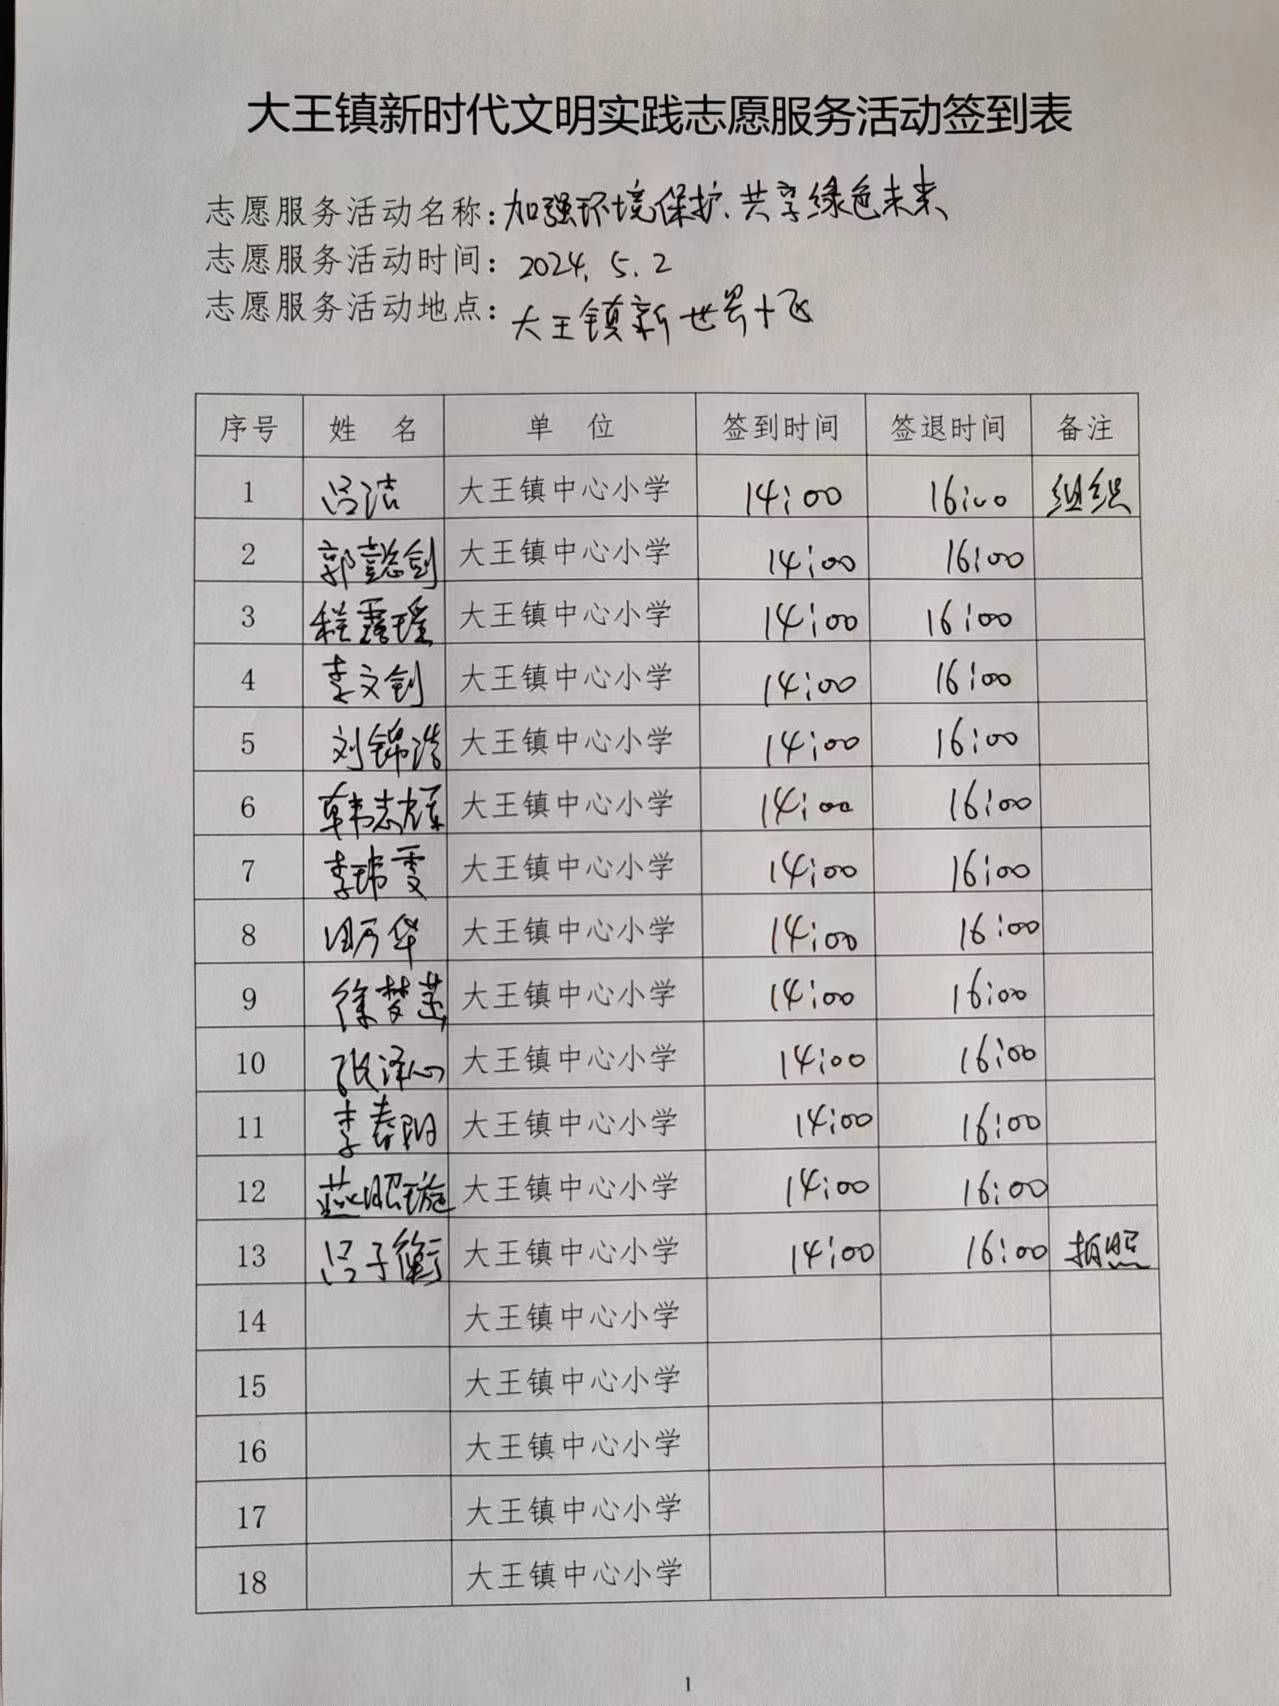 大王镇新时代文明实践志愿服务活动签到表
志愿服务活动名称：加强环境保护、共享绿色未来
志愿服务活动时间：2024.5.2
志愿服务活动地点：大王镇新世界十飞
序号 姓 名 单 位 签到时间 签退时间 备注
1 吕洁 大王镇中心小学 14:00 16:00 组织
2 郭懿剑 大王镇中心小学 14:00 16:00
3 程露瑶 大王镇中心小学 14:00 16:00
4 李文剑 大王镇中心小学 14:00 16:00
5 刘锦浩 大王镇中心小学 14:00 16:00
6 韩志雄 大王镇中心小学 14:00 16:00
7 李玮雯 大王镇中心小学 14:00 16:00
8 田万华 大王镇中心小学 14:00 16:00
9 徐梦茁 大王镇中心小学 14:00 16:00
10 张泽心 大王镇中心小学 14:00 16:00
11 李春阳 大王镇中心小学 14:00 16:00
12 燕昭璇 大王镇中心小学 14:00 16:00
13 吕子衡 大王镇中心小学 14:00 16:00 拍照
14 大王镇中心小学
15 大王镇中心小学
16 大王镇中心小学
17 大王镇中心小学
18 大王镇中心小学
1